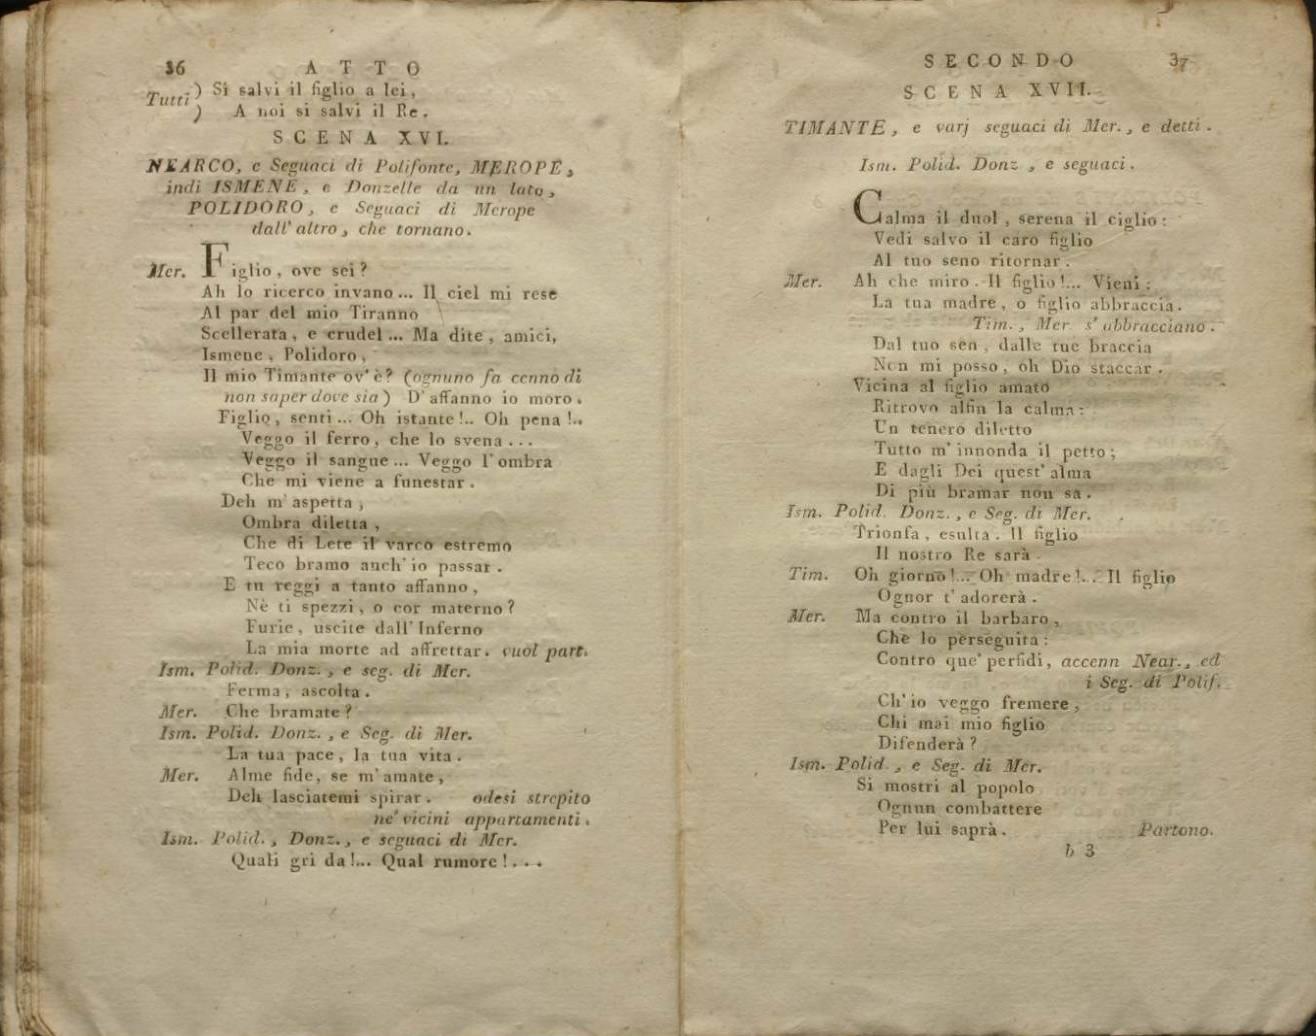 36 ATTO
Tutti ) Si salvi il figlio a lei,
) A noi si salvi il Re.
SCENA XVI.
NEARCO, e Seguaci di Polifonte, MEROPE,
indi ISMENE, e Donzelle da un lato,
POLIDORO, e Seguaci di Merope
dall' altro, che tornano.
Mer. Figlio, ove sei?
Ah lo ricerco invano... Il ciel mi rese
Al par del mio Tiranno
Scellerata, e crudel... Ma dite, amici,
Ismene, Polidoro,
Il mio Timante ov' è? (ognuno fa cenno di
non saper dove sia) D' affanno io moro.
Figlio, senti... Oh istante!.. Oh pena!..
Veggo il ferro, che lo svena...
Veggo il sangue... Veggo l' ombra
Che mi viene a funestar.
Deh m' aspetta,
Ombra diletta,
Che di Lete il varco estremo
Teco bramo anch' io passar.
E tu reggi a tanto affanno,
Nè ti spezzi, o cor materno?
Furie, uscite dall' Inferno
La mia morte ad affrettar. vuol part.
Ism. Polid. Donz., e seg. di Mer.
Ferma, ascolta.
Mer. Che bramate?
Ism. Polid. Donz., e Seg. di Mer.
La tua pace, la tua vita.
Mer. Alme fide, se m' amate,
Deh lasciatemi spirar. odesi strepito
ne' vicini appartamenti.
Ism. Polid., Donz., e seguaci di Mer.
Quali gri da!... Qual rumore!...
SECONDO 37
SCENA XVII.
TIMANTE, e varj seguaci di Mer., e detti.
Ism. Polid. Donz, e seguaci.
Calma il duol, serena il ciglio:
Vedi salvo il caro figlio
Al tuo seno ritornar.
Mer. Ah che miro. Il figlio!... Vieni:
La tua madre, o figlio abbraccia.
Tim., Mer s' abbracciano.
Dal tuo sen, dalle tue braccia
Non mi posso, oh Dio staccar.
Vicina al figlio amato
Ritrovo alfin la calma:
Un tenero diletto
Tutto m' innonda il petto;
E dagli Dei quest' alma
Di più bramar non sa.
Ism. Polid. Donz., e Seg. di Mer.
Trionfa, esulta. Il figlio
Il nostro Re sarà.
Tim. Oh giorno!... Oh madre!... Il figlio
Ognor t' adorerà.
Mer. Ma contro il barbaro,
Che lo perseguita:
Contro que' perfidi, accenn Near., ed
i Seg. di Polif.
Ch' io veggo fremere,
Chi mai mio figlio
Difenderà?
Ism. Polid., e Seg. di Mer.
Si mostri al popolo
Ognun combattere
Per lui saprà. Partono.
b 3